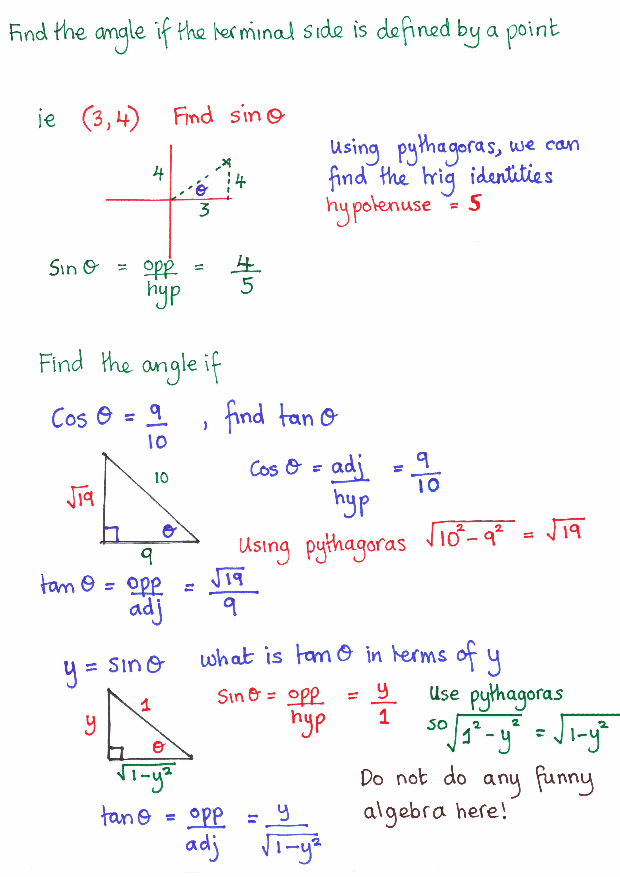 Find the angle if the terminal side is defined by a point
ie (3,4) Find sin θ
4
θ
4
3
Using pythagoras, we can
find the trig identities
hypotenuse = 5
Sin θ = opp/hyp = 4/5
Find the angle if
Cos θ = 9/10 , find tan θ
√19
10
θ
9
Cos θ = adj/hyp = 9/10
Using pythagoras √(10² - 9²) = √19
tan θ = opp/adj = √19/9
y = sin θ what is tan θ in terms of y
y
1
θ
√(1-y²)
Sin θ = opp/hyp = y/1
Use pythagoras
so √(1² - y²) = √(1-y²)
Do not do any funny
algebra here!
tan θ = opp/adj = y/√(1-y²)